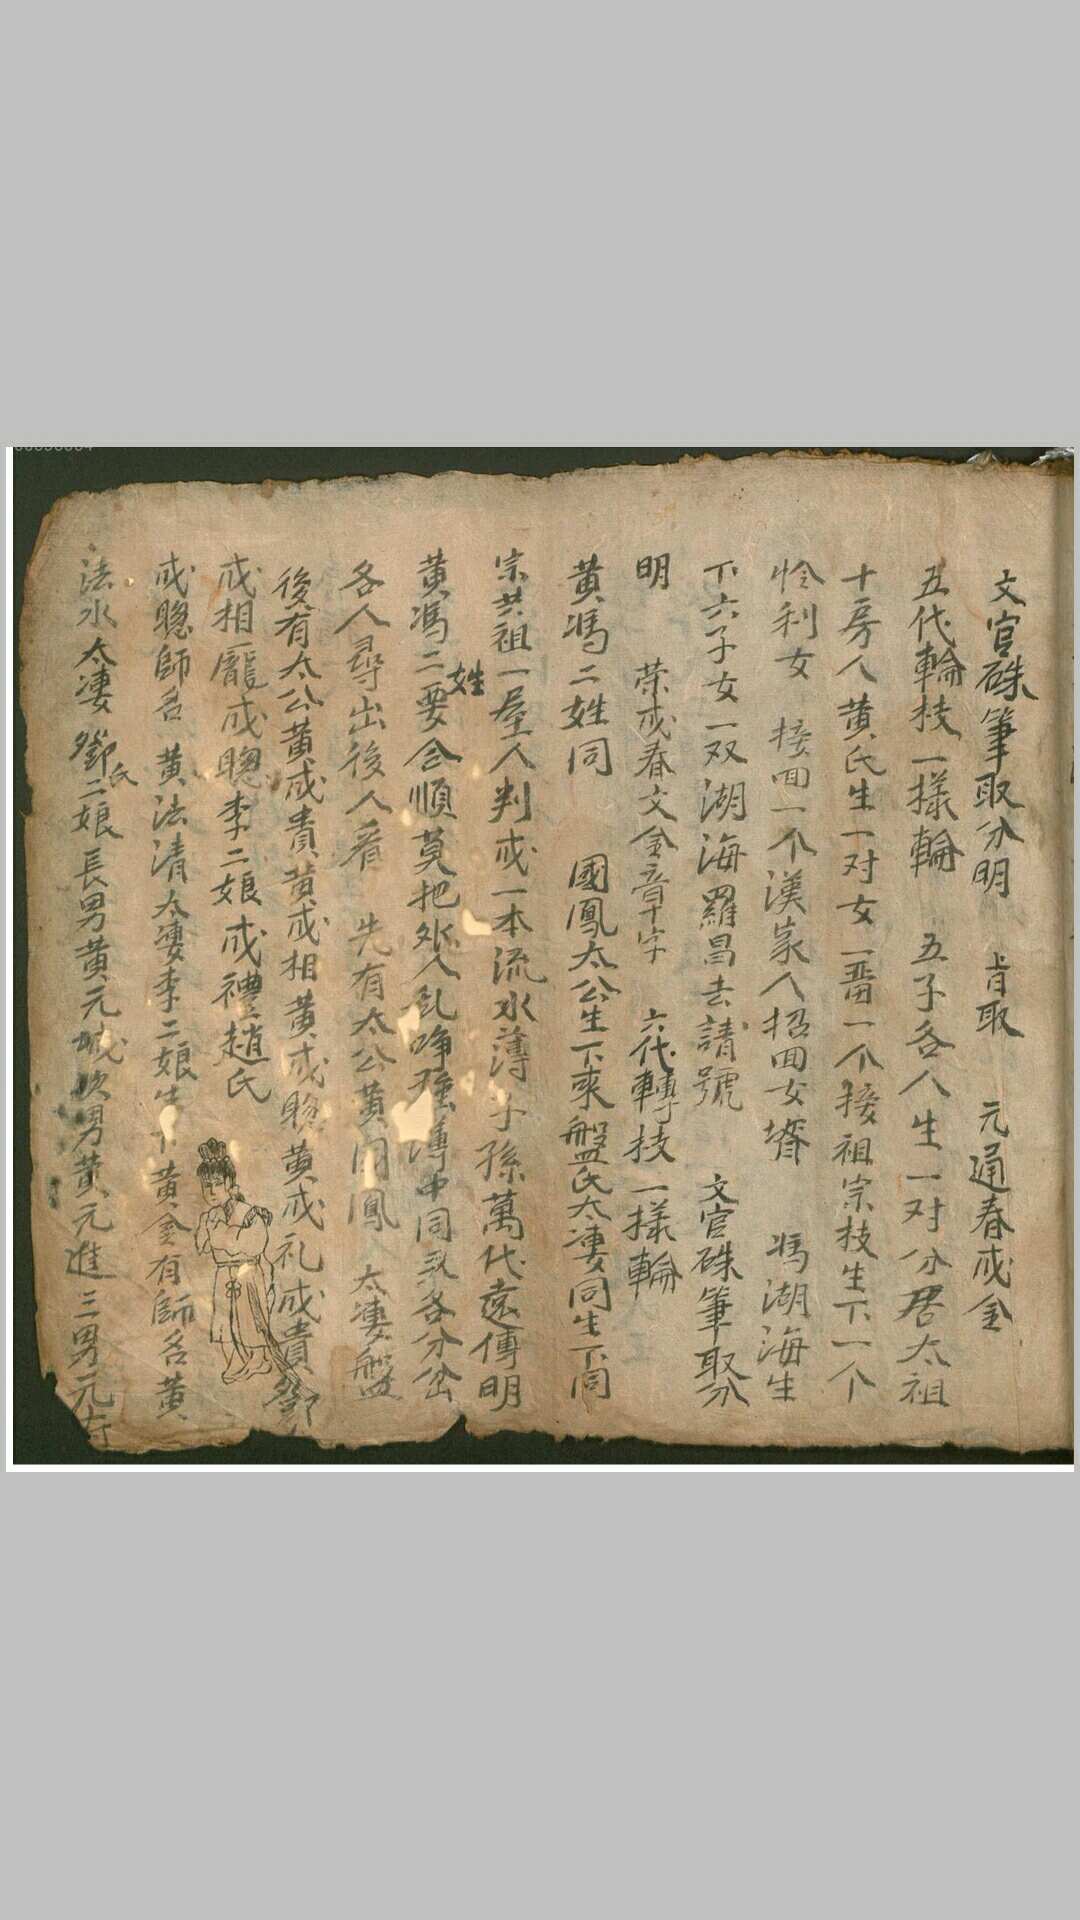 文官硃筆取分明　肯取　元通春戒金
五代輪枝一樣輪　五子各人生一对分居太祖
十房人黄氏生一对女一畨一个接祖宗枝生下一个
怜利女　接回一个漢家人招回女壻　馮湖海生
下六子女一双湖海羅昌去請號　文官硃筆取分
明　荣戒春文金章十字　六代轉枝一樣輪
黄馮二姓同　國鳳太公生下來盤氏太凄同生下同
宗共祖一屋人判戒一本流水薄子孫萬代遠傳明
黄馮二姓要合順莫把外人乱争薄中同各分岔
各人尋出後人看　先有太公黄国鳳　太凄盤
後有太公黄戒貴黄戒相黄戒聰黄戒礼戒貴鄧
戒相龐戒聰李二娘戒禮趙氏
戒聰師名黄法清太凄李二娘生下黄金有師名黄
法水太凄鄧氏二娘長男黄元城次男黄元進三男元